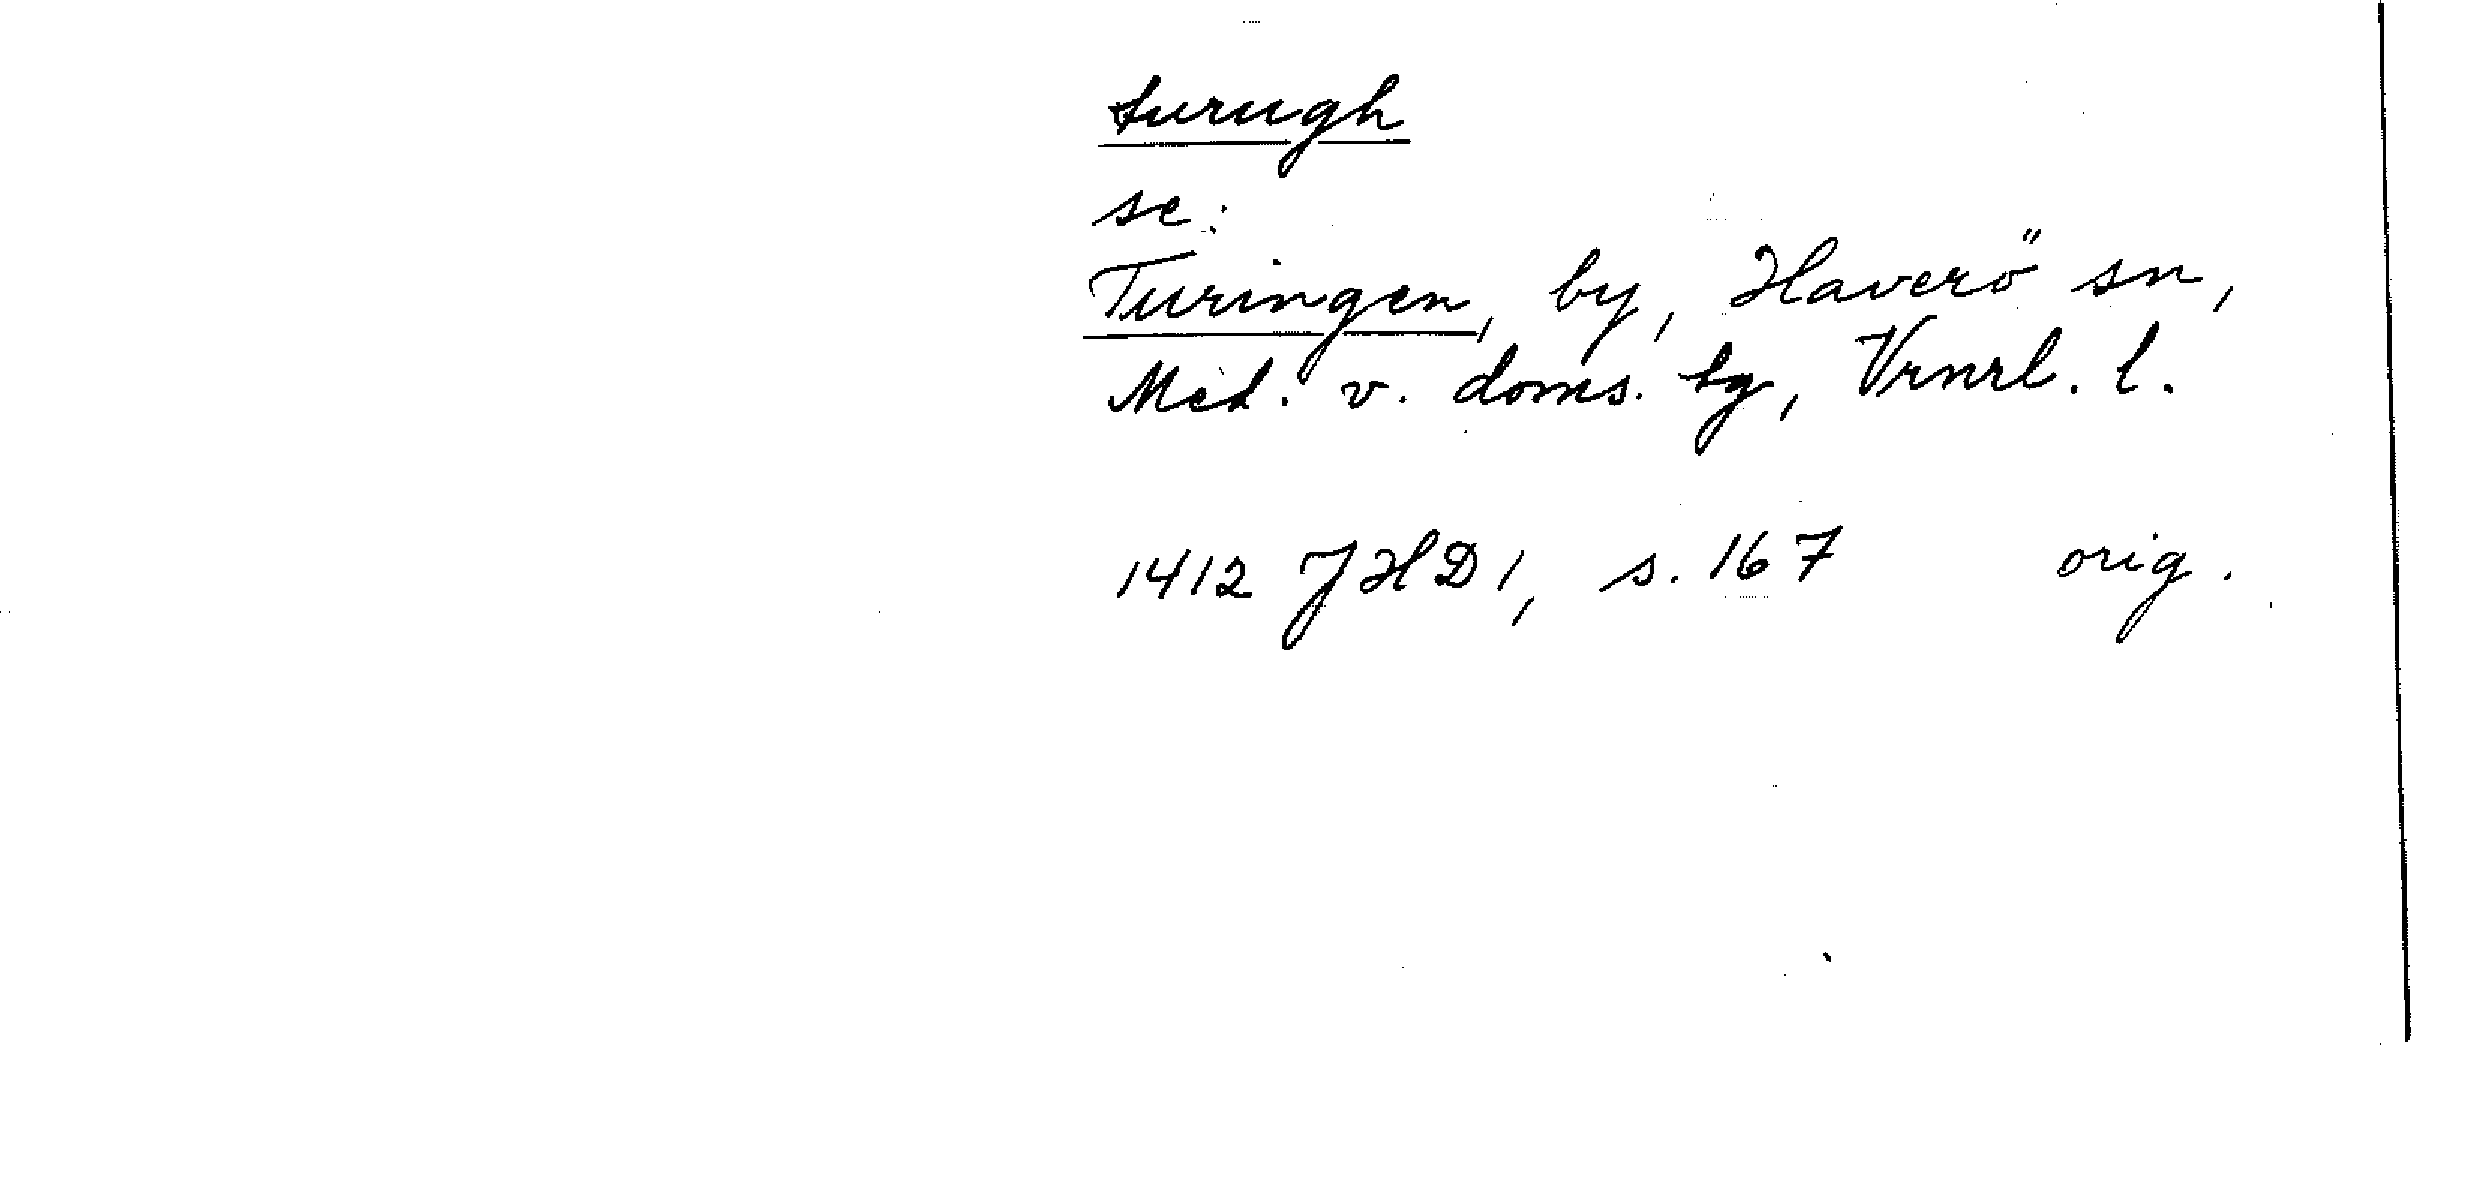 turugh
se:
Turingen, by, Haverö sn,
Med. v. doms. sg, Vrnrl. l.
1412 JHD 1, s. 167 orig.